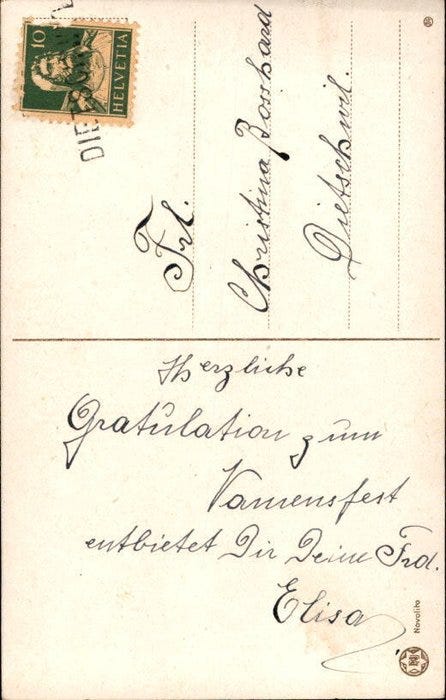 10
HELVETIA
Frl.
Christina Bosshard
Dietschwil.
Herzliche
Gratulation zum
Namensfest
entbietet Dir Deine Frd.
Elisa
Novolito